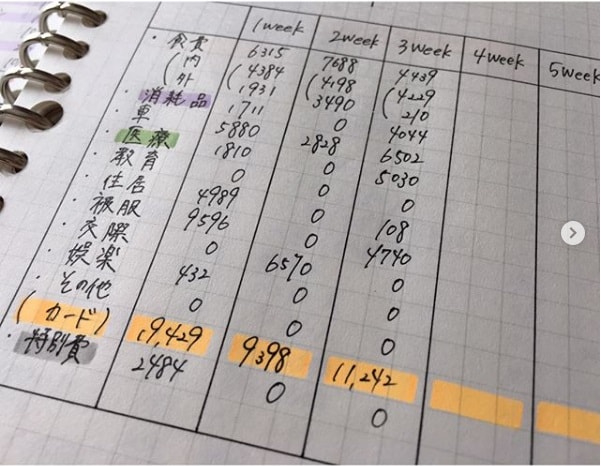 1week 2week 3week 4week 5week
・食費 6315 7688 4439
(内 (4384 (4198 (4229
(外 (1931 (3490 (210
・消耗品 1711 0 4044
・車 5880 2828 6502
・医療 1810 0 5030
・教育 0 0 0
・住居 4989 0 108
・被服 9596 0 4740
・交際 0 6570 0
・娯楽 432 0 0
・その他 0 0 0
(カード) 19,429 9398 11,242
・特別費 2484 0 0